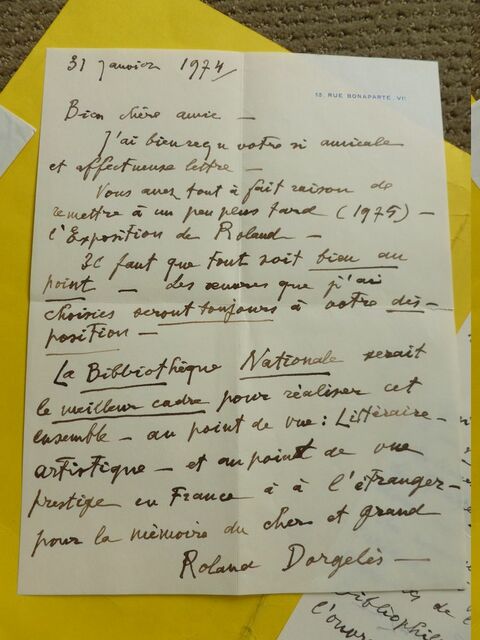 31 janvier 1974
13 RUE BONAPARTE. VIe
Bien chère amie —
J'ai bien reçu votre si amicale
et affectueuse lettre —
Vous avez tout à fait raison de
remettre à un peu plus tard (1975) —
l'Exposition de Roland —
Il faut que tout soit bien au
point — Les œuvres que j'ai
choisies seront toujours à votre dis-
position —
La Bibliothèque Nationale serait
le meilleur cadre pour réaliser cet
ensemble — au point de vue : Littéraire —
artistique — et au point de vue
prestige en France à à l'étranger —
pour la mémoire du cher et grand
Roland Dorgelès —
es de
bibliophile
l'ouvr